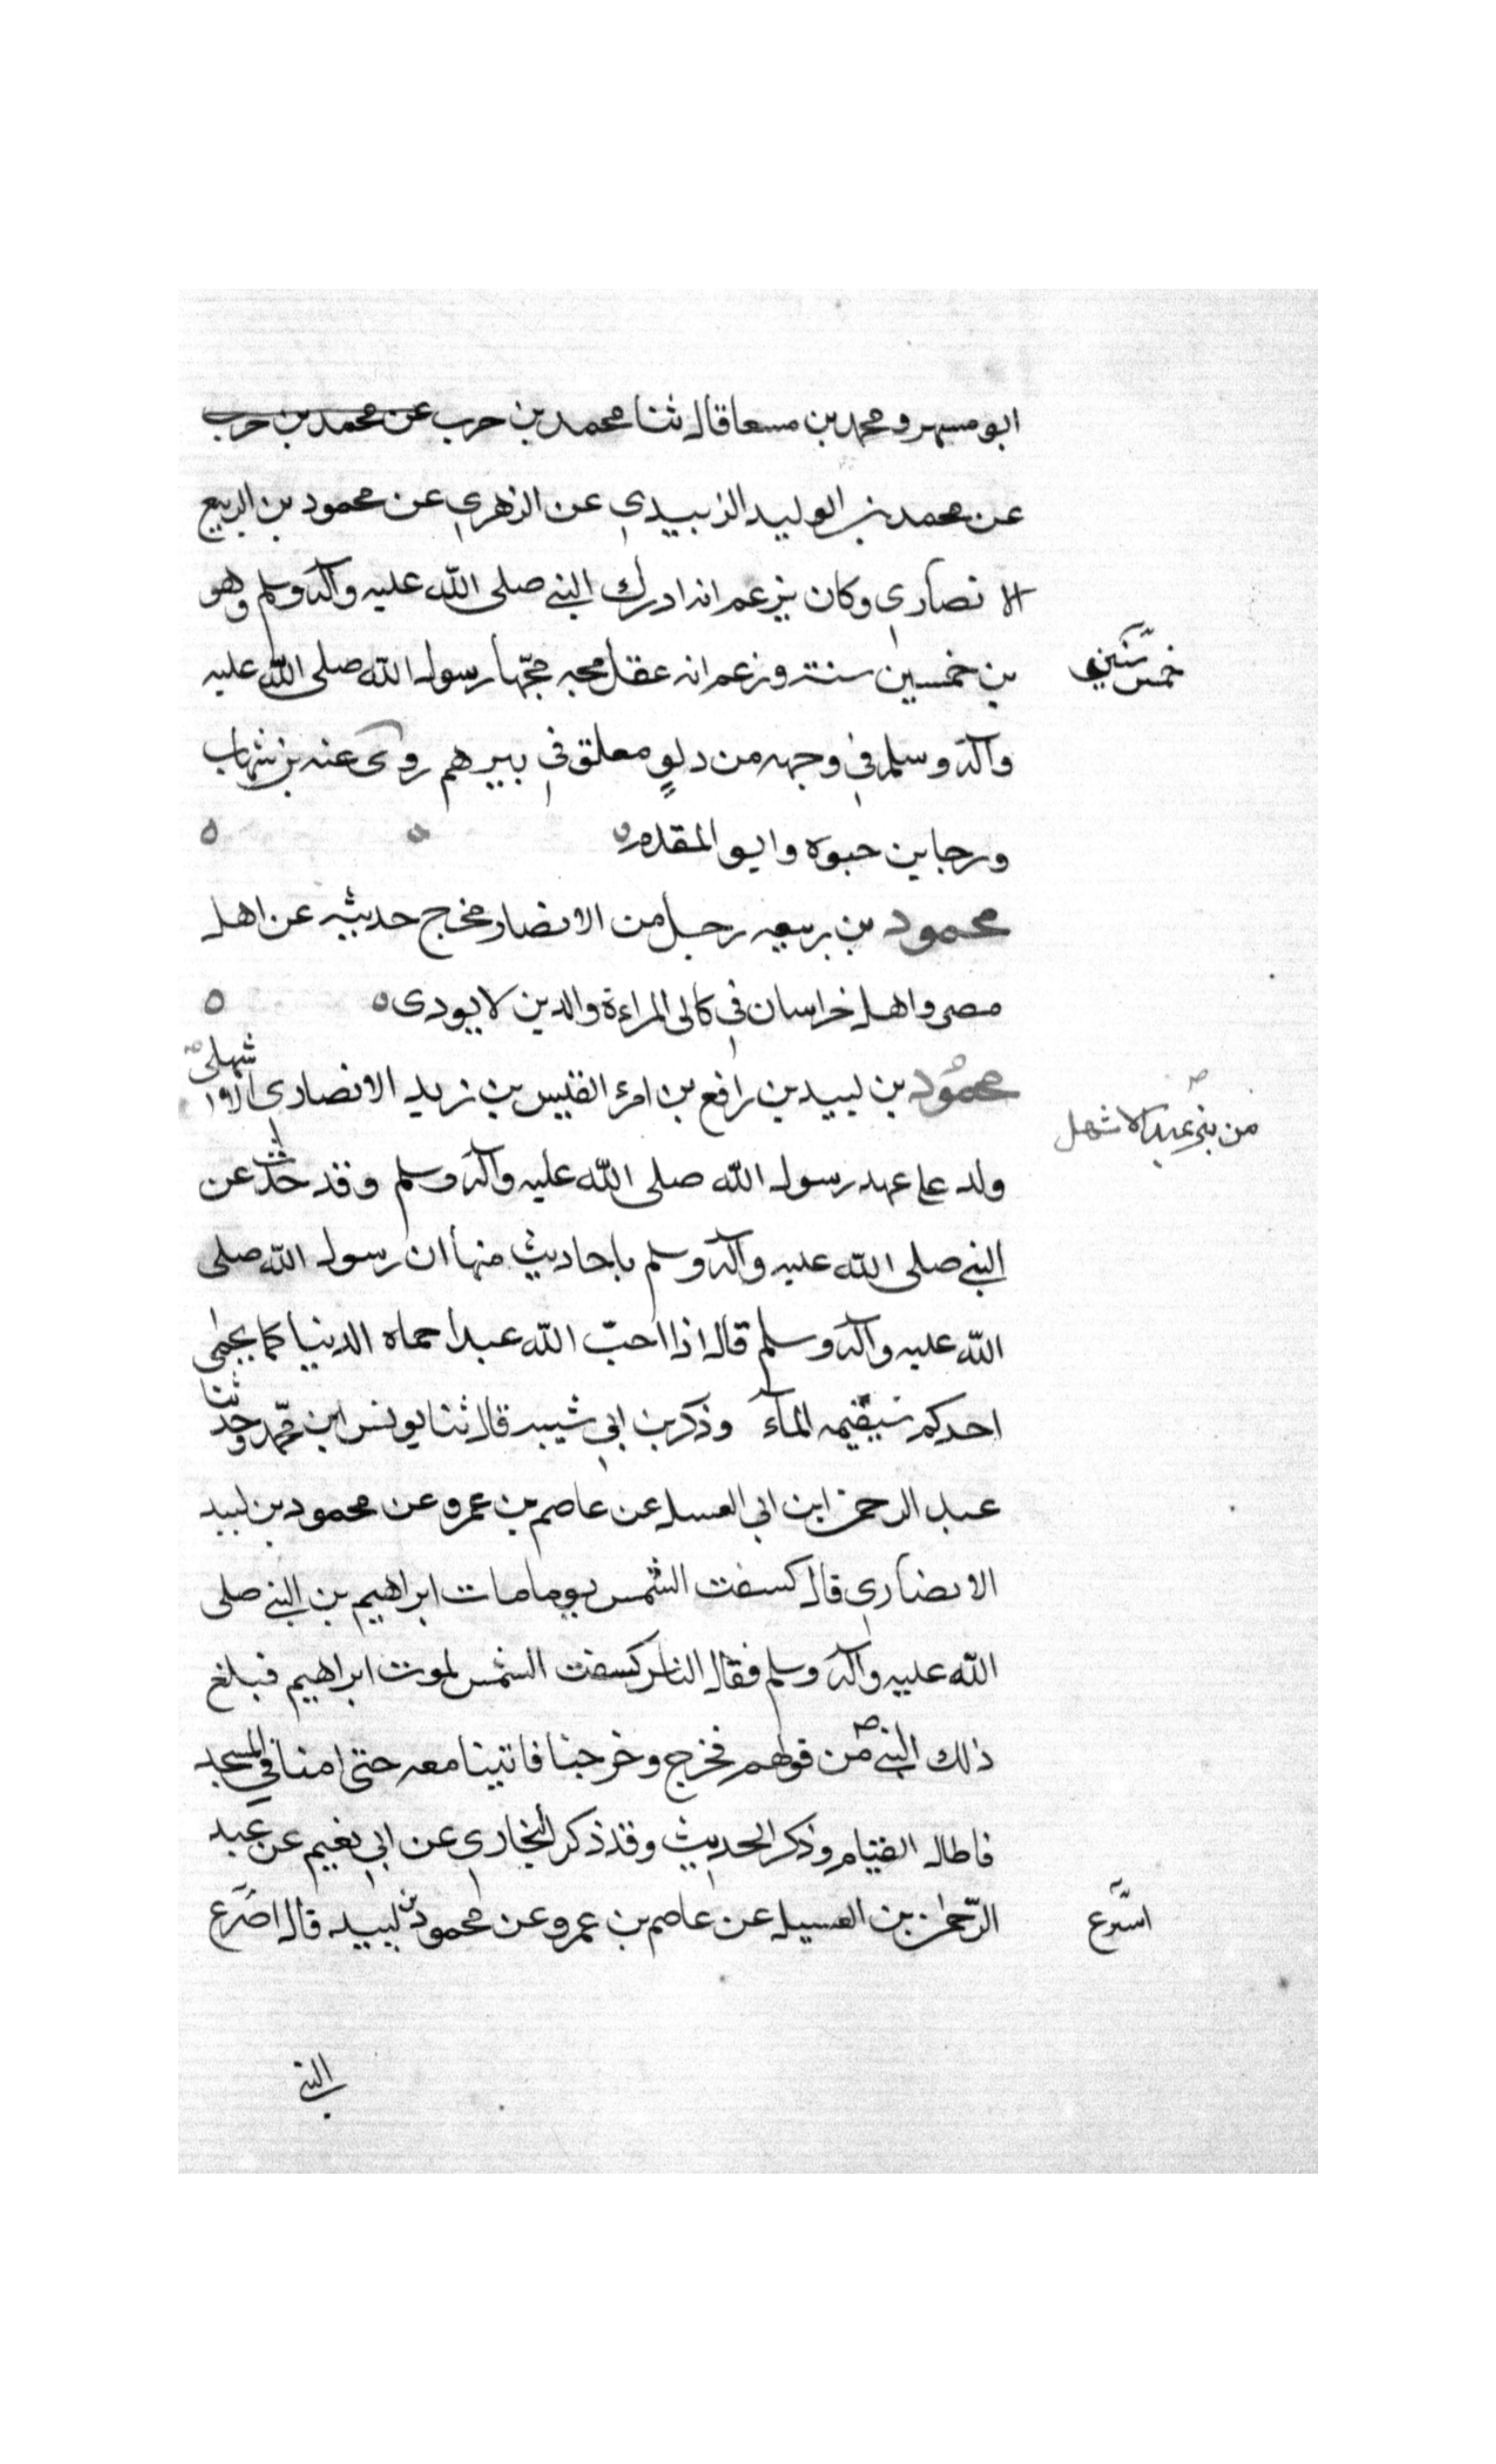 ابو مسهر و محمد بن مسعا قال ثنا محمد بن حرب عن محمد بن حرب
عن محمد بن الوليد الزبيدي عن الزهري عن محمود بن الربيع
الانصاري وكان يزعم انه ادرك النبي صلى الله عليه وآله وسلم وهو
بن خمسين سنة وزعم انه عقل مجه مجّها رسول الله صلى الله عليه
خمس سنين
وآله وسلم في وجهه من دلوٍ معلق في بيرهم روى عنه بن شهاب
ورجا بن حبوه وابو المقدم
محمود بن ربيعه رجل من الانصار مخرج حديثه عن اهل
مصر واهل خراسان في كالى المراءة والدين لا يودى
محمود بن لبيد بن رافع بن امرء القيس بن زيد الانصاري الاشهلي
من بني عبد الاشهل
ولد على عهد رسول الله صلى الله عليه وآله وسلم وقد حدّث عن
النبي صلى الله عليه وآله وسلم باحاديث منها ان رسول الله صلى
الله عليه وآله وسلم قال اذا احبّ الله عبدا حماه الدنيا كما يحمي
احدكم سقيمه المآء وذكر بن ابي شيبه قال ثنا يونس ابن محمد وحدّثنا
عبد الرحمن ابن ابي الغسل عن عاصم بن عمرو عن محمود بن لبيد
الانصاري قال كسفت الشمس يوم مات ابراهيم بن النبي صلى
الله عليه وآله وسلم فقال الناس كسفت الشمس لموت ابراهيم فبلغ
ذلك النبي ص من قولهم فخرج وخرجنا فاتينا معه حتى امنا في المسجد
فاطال القيام وذكر الحديث وقد ذكر البخاري عن ابي نعيم عن عبد
الرّحمن بن الغسيل عن عاصم بن عمرو عن محمود بن لبيد قال اصرع
اسرع
النبي